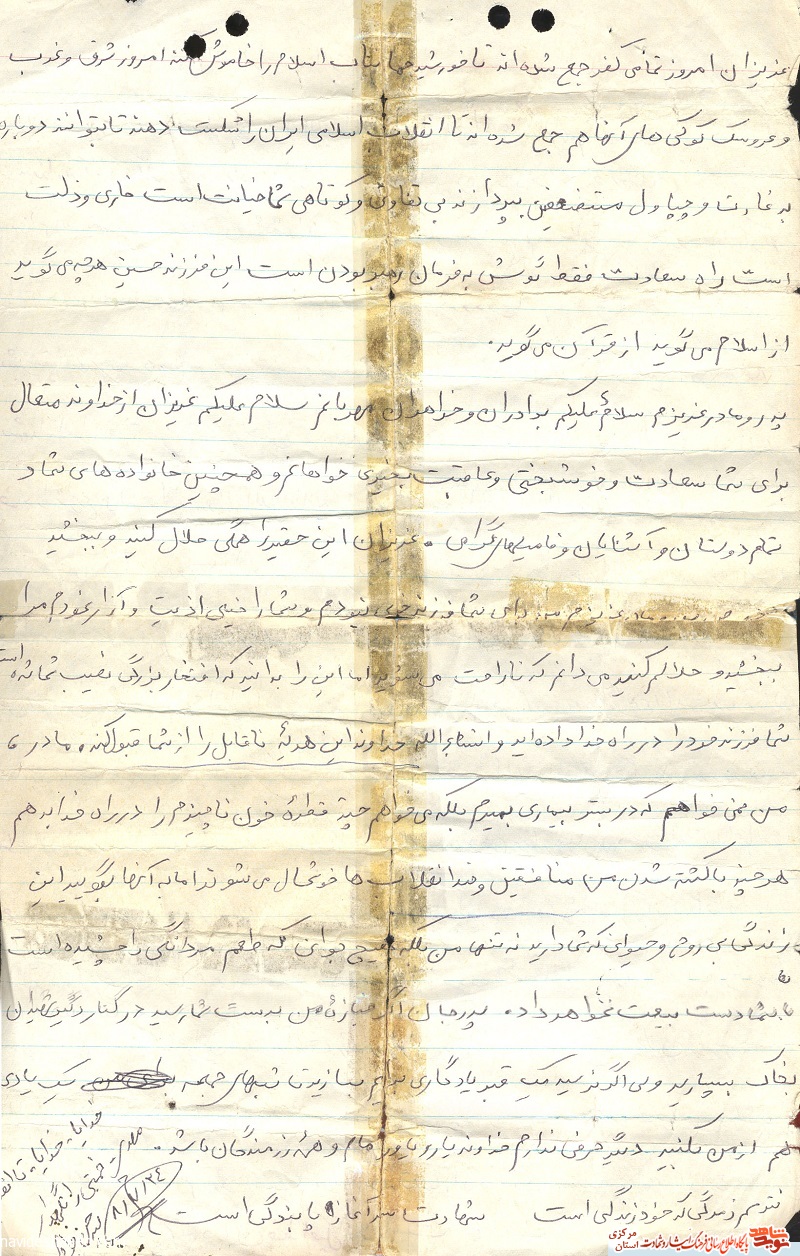 عزیزان امروز تمامی کفر جمع شده اند تا خورشید جهانتاب اسلام را خاموش کنند امروز شرق و غرب
و عروسک کوکی های آنها هم جمع شده اند تا انقلاب اسلامی ایران را شکست دهند تا بتوانند دوباره
به غارت و چپاول مستضعفین بپردازند بی تفاوتی و کوتاهی شما خیانت است خاری و ذلت
است راه سعادت فقط گوش به فرمان رهبر بودن است این فرزند حسین هرچه می گوید
از اسلام می گوید از قرآن می گوید.
پدر و مادر عزیزم سلام علیکم برادران و خواهران مهربانم سلام علیکم عزیزان از خداوند متعال
برای شما سعادت و خوشبختی و عاقبت بخیری خواهانم و همچنین خانواده های شما و
تمام دوستان و آشنایان و فامیلهای گرامی . عزیزان این حقیر را همگی حلال کنید و ببخشید
مادر عزیزم برای شما فرزند خوبی نبودم و شما را خیلی اذیت و آزار نمودم مرا
ببخشید و حلالم کنید می دانم که ناراحت می شوید اما این را بدانید که افتخار بزرگی نصیب شما شده است
شما فرزند خود را در راه خدا داده اید و انشاءالله خداوند این هدیۀ ناقابل را از شما قبول کند. مادر ،
من نمی خواهم که در بستر بیماری بمیرم بلکه می خواهم چند قطرۀ خون ناچیزم را در راه خدا بدهم
هرچند با کشته شدن من منافقین و ضدانقلاب ها خوشحال می شوند اما به آنها بگویید این
زندگی بی روح و حیوانی که شما دارید نه تنها من بلکه هیچ جوانی که طعم مردانگی را چشیده است
با شما دست بیعت نخواهد داد. پدر جان اگر جنازۀ من بدست شما رسید در کنار دیگر شهیدان
بخاک بسپارید ولی اگر نرسید یک قبر یادگاری برایم بسازید تا شبهای جمعه یک یادی
هم از من بکنید دیگر حرفی ندارم خداوند یار و یاور امام و همۀ رزمندگان باشد.
زندگی که خود زندگی است شهادت سرآغاز پایندگی است
خدایا خدایا تا انقلاب
مهدی خمینی را نگهدار
۸/۷/۲۴
پایگاه اطلاع رسانی فرهنگ ایثار و شهادت
استان مرکزی
نوید شاهد